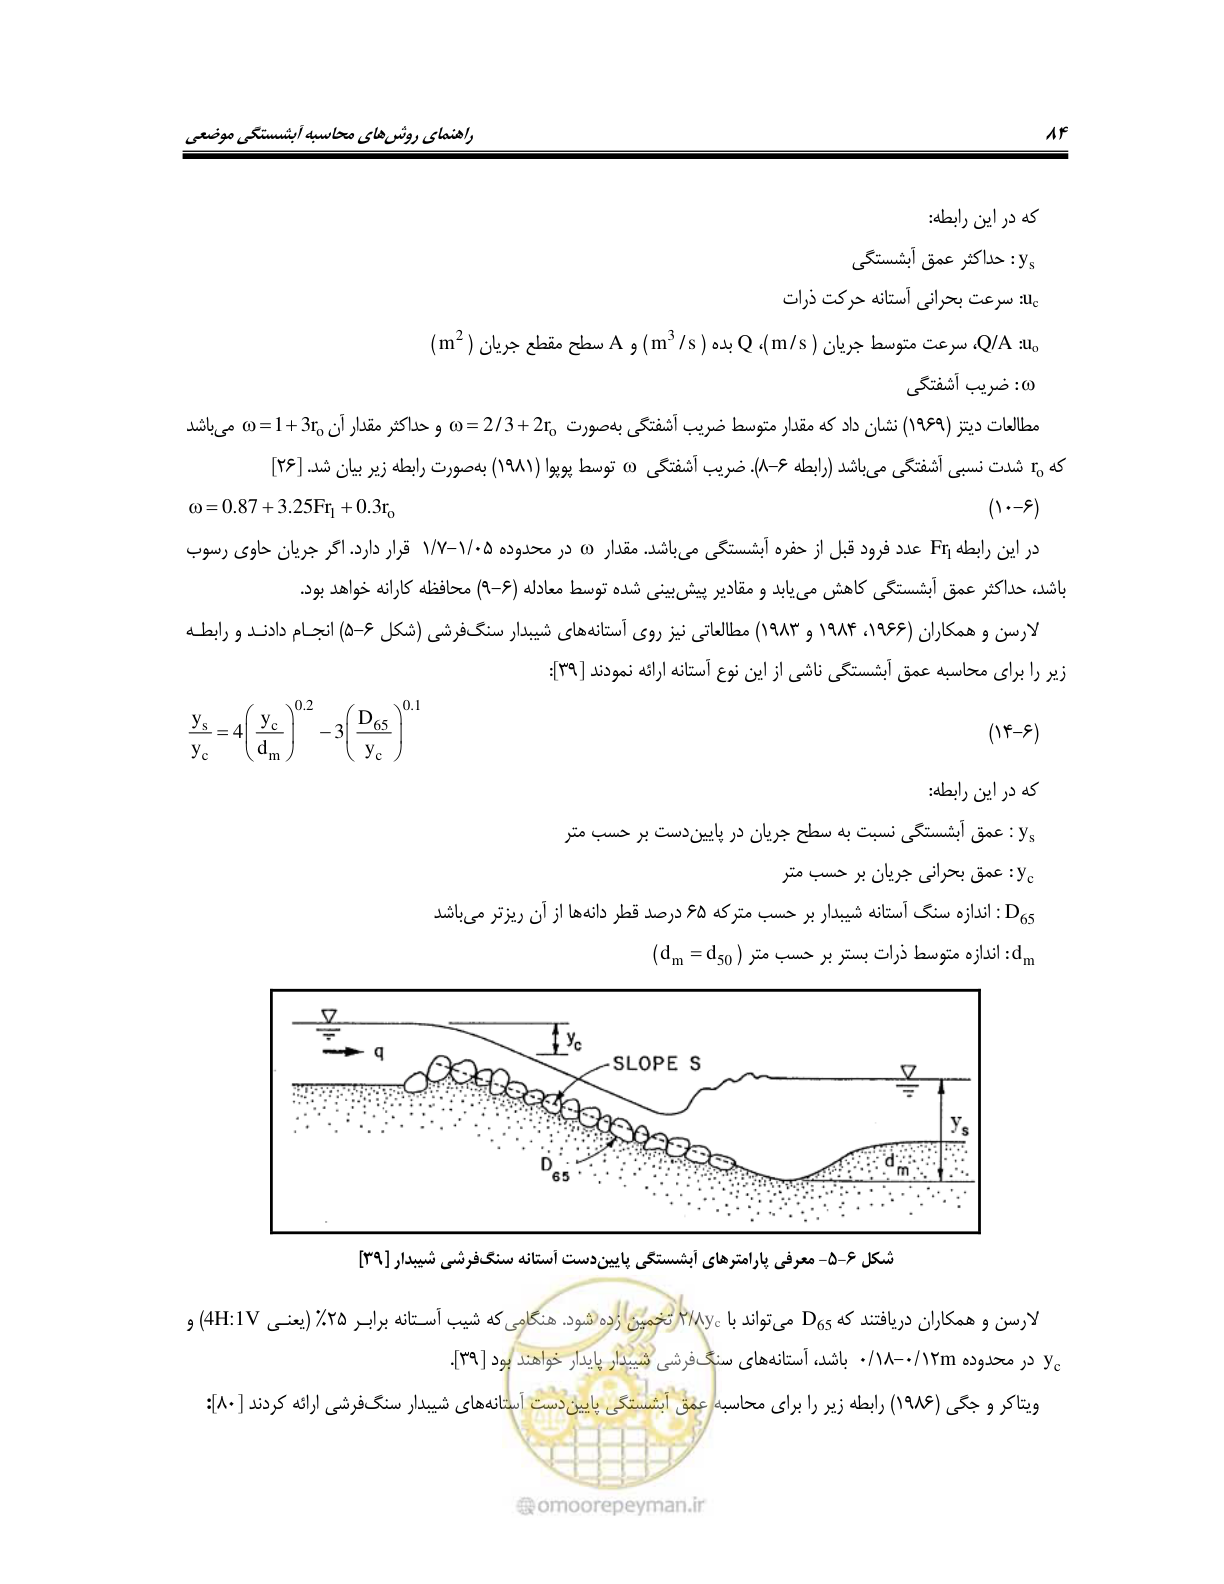 ۸۴ راهنمای روش‌های محاسبه آبشستگی موضعی
که در این رابطه:
yₛ : حداکثر عمق آبشستگی
u_c: سرعت بحرانی آستانه حرکت ذرات
uₒ: Q/A، سرعت متوسط جریان (m/s)، Q بده (m³/s) و A سطح مقطع جریان (m²)
ω : ضریب آشفتگی
مطالعات دیتز (۱۹۶۹) نشان داد که مقدار متوسط ضریب آشفتگی به‌صورت ω = 2/3 + 2rₒ و حداکثر مقدار آن ω = 1 + 3rₒ می‌باشد
که rₒ شدت نسبی آشفتگی می‌باشد (رابطه ۶-۸). ضریب آشفتگی ω توسط پوپوا (۱۹۸۱) به‌صورت رابطه زیر بیان شد. [۲۶]
(۶-۱۰) ω = 0.87 + 3.25Fr₁ + 0.3rₒ
در این رابطه Fr₁ عدد فرود قبل از حفره آبشستگی می‌باشد. مقدار ω در محدوده ۱/۰۵-۱/۷ قرار دارد. اگر جریان حاوی رسوب
باشد، حداکثر عمق آبشستگی کاهش می‌یابد و مقادیر پیش‌بینی شده توسط معادله (۶-۹) محافظه کارانه خواهد بود.
لارسن و همکاران (۱۹۶۶، ۱۹۸۴ و ۱۹۸۳) مطالعاتی نیز روی آستانه‌های شیبدار سنگ‌فرشی (شکل ۶-۵) انجام دادند و رابطه
زیر را برای محاسبه عمق آبشستگی ناشی از این نوع آستانه ارائه نمودند [۳۹]:
(۶-۱۴) yₛ/y_c = 4(y_c/d_m)^0.2 − 3(D₆₅/y_c)^0.1
که در این رابطه:
yₛ : عمق آبشستگی نسبت به سطح جریان در پایین‌دست بر حسب متر
y_c : عمق بحرانی جریان بر حسب متر
D₆₅ : اندازه سنگ آستانه شیبدار بر حسب مترکه ۶۵ درصد قطر دانه‌ها از آن ریزتر می‌باشد
d_m : اندازه متوسط ذرات بستر بر حسب متر (d_m = d₅₀)
q
y_c
SLOPE S
D₆₅
yₛ
d_m
شکل ۶-۵- معرفی پارامترهای آبشستگی پایین‌دست آستانه سنگ‌فرشی شیبدار [۳۹]
لارسن و همکاران دریافتند که D₆₅ می‌تواند با ۲/۸y_c تخمین زده شود. هنگامی‌که شیب آستانه برابر ۲۵٪ (یعنی 4H:1V) و
y_c در محدوده ۰/۱۸-۰/۱۲m باشد، آستانه‌های سنگ‌فرشی شیبدار پایدار خواهند بود [۳۹].
ویتاکر و جگی (۱۹۸۶) رابطه زیر را برای محاسبه عمق آبشستگی پایین‌دست آستانه‌های شیبدار سنگ‌فرشی ارائه کردند [۸۰]:
امور پیمان
@omoorepeyman.ir